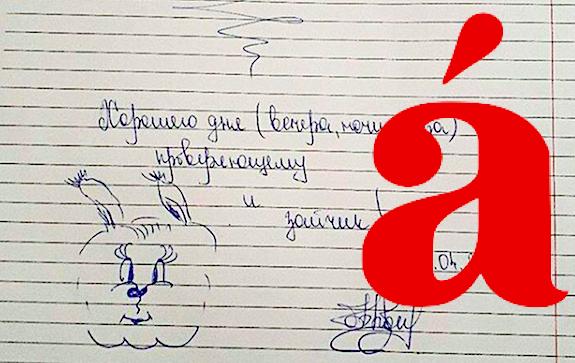 Хорошего дня (вечера, ночи
проверяющему
и
зайчик!
.04.
á